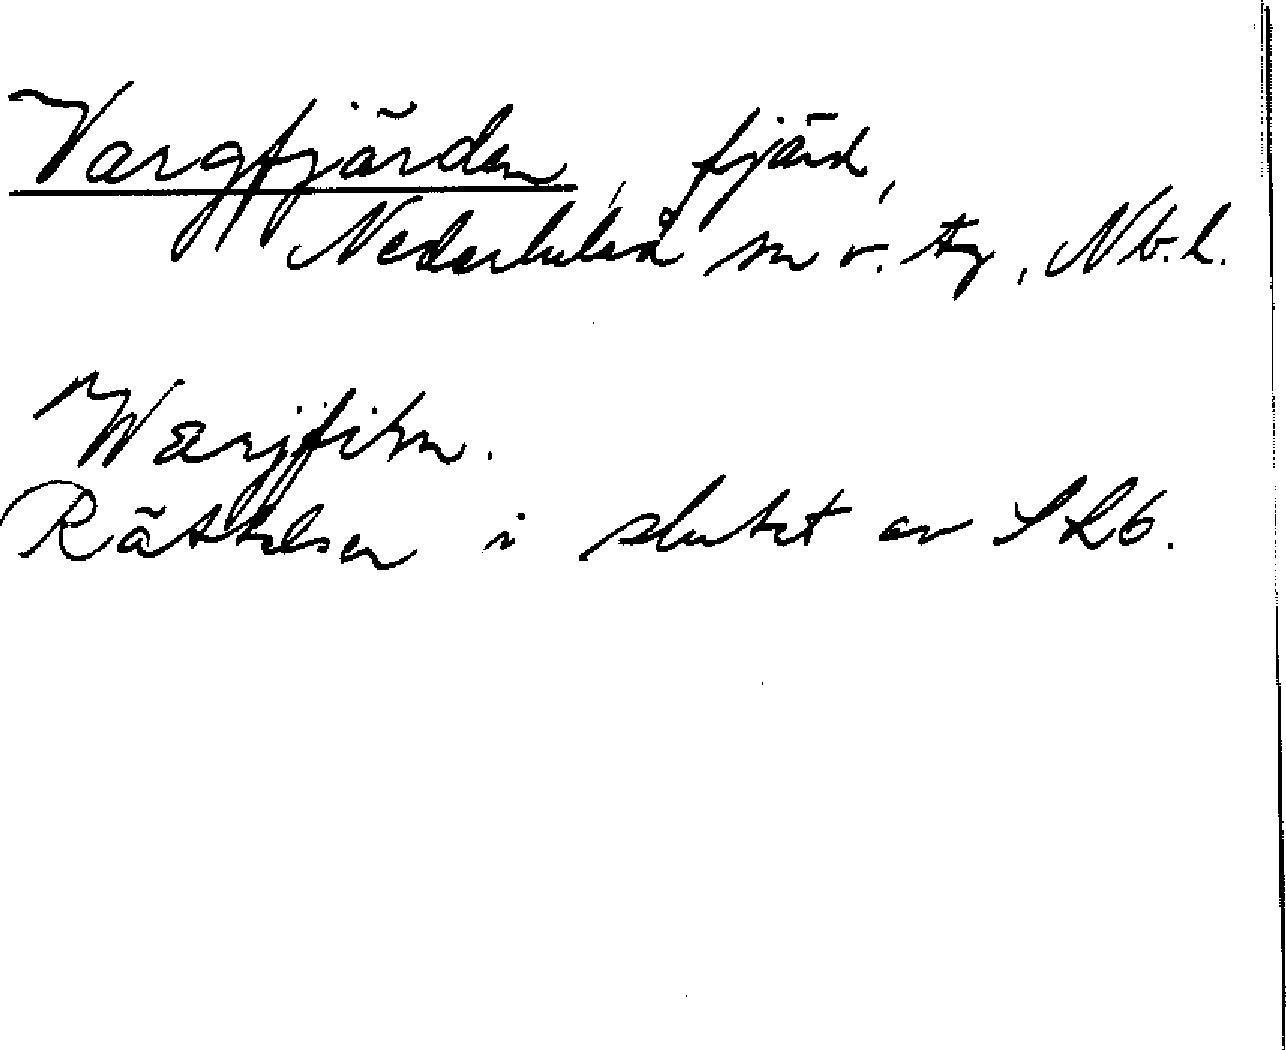 Vargfjärden, fjärd,
Nederluleå sn o. tg, Nb.l.
Rättelser i slutet av SLb.